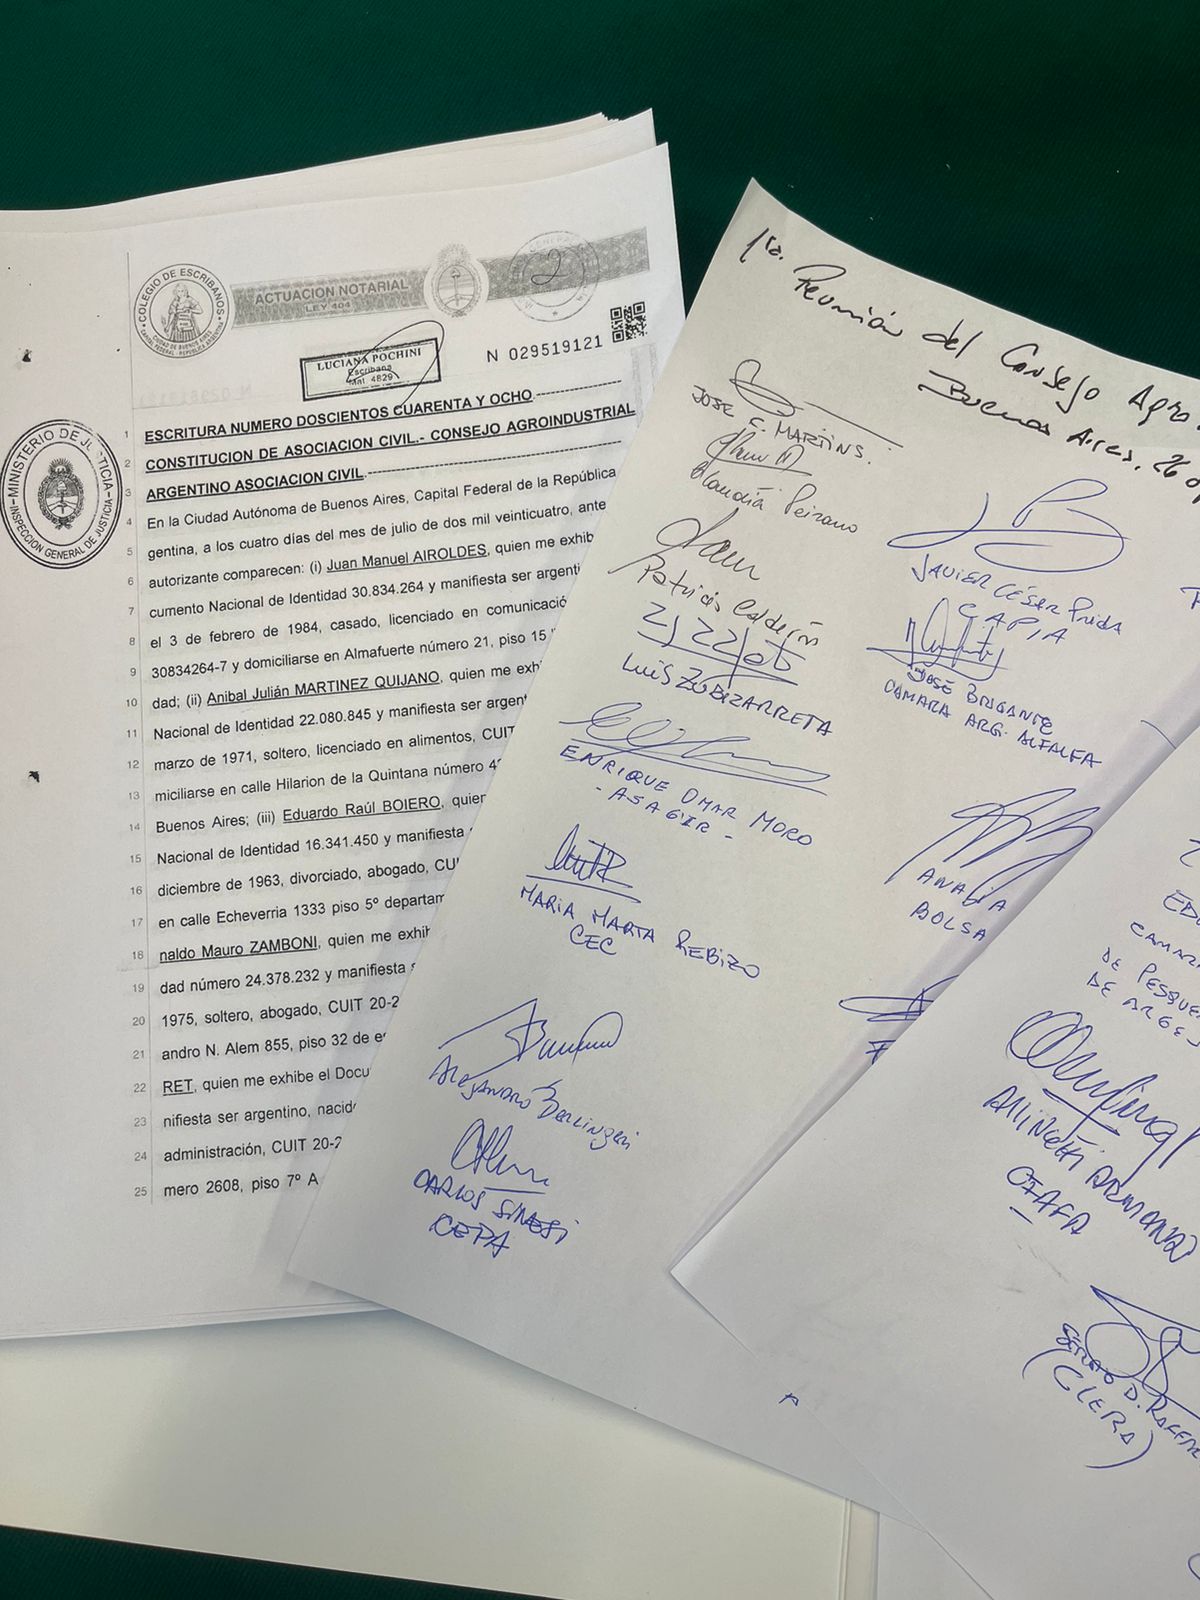 COLEGIO DE ESCRIBANOS
CIUDAD DE BUENOS AIRES
CAPITAL FEDERAL - REPUBLICA ARGENTINA
ACTUACION NOTARIAL
LEY 404
2
LUCIANA POCHINI
Escribana
Mat. 4829
N 029519121
MINISTERIO DE JUSTICIA
INSPECCION GENERAL DE JUSTICIA
1 ESCRITURA NUMERO DOSCIENTOS CUARENTA Y OCHO
2 CONSTITUCION DE ASOCIACION CIVIL.- CONSEJO AGROINDUSTRIAL
3 ARGENTINO ASOCIACION CIVIL.
4 En la Ciudad Autónoma de Buenos Aires, Capital Federal de la República
5 gentina, a los cuatro días del mes de julio de dos mil veinticuatro, ante
6 autorizante comparecen: (i) Juan Manuel AIROLDES, quien me exhib
7 cumento Nacional de Identidad 30.834.264 y manifiesta ser argenti
8 el 3 de febrero de 1984, casado, licenciado en comunicació
9 30834264-7 y domiciliarse en Almafuerte número 21, piso 15
10 dad; (ii) Anibal Julián MARTINEZ QUIJANO, quien me exh
11 Nacional de Identidad 22.080.845 y manifiesta ser argent
12 marzo de 1971, soltero, licenciado en alimentos, CUIT
13 miciliarse en calle Hilarion de la Quintana número 4
14 Buenos Aires; (iii) Eduardo Raúl BOIERO, quien
15 Nacional de Identidad 16.341.450 y manifiesta
16 diciembre de 1963, divorciado, abogado, CU
17 en calle Echeverria 1333 piso 5º departam
18 naldo Mauro ZAMBONI, quien me exhib
19 dad número 24.378.232 y manifiesta s
20 1975, soltero, abogado, CUIT 20-2
21 andro N. Alem 855, piso 32 de es
22 RET, quien me exhibe el Docu
23 nifiesta ser argentino, nacid
24 administración, CUIT 20-2
25 mero 2608, piso 7º A
1ra. Reunión del Consejo Agro
Buenos Aires, 26
JOSE F. MARTINS.
Claudia Peirano
Patricia Calderón
LUIS ZUBIZARRETA
ENRIQUE OMAR MORO
- ASAGIR -
MARIA MARTA REBIZO
CEC
Alejandro Berlingeri
CARLOS SINESI
CEPA
JAVIER CÉSAR PRIDA
CAPIA
JOSÉ BRIGANTE
CAMARA ARG. ALFALFA
ANALIA
BOLSA
F
CAMAR
DE PESQUE
DE ARGE
Allinetti ARMANDO
CIAFA
D. RAFFAE
(CLERA)